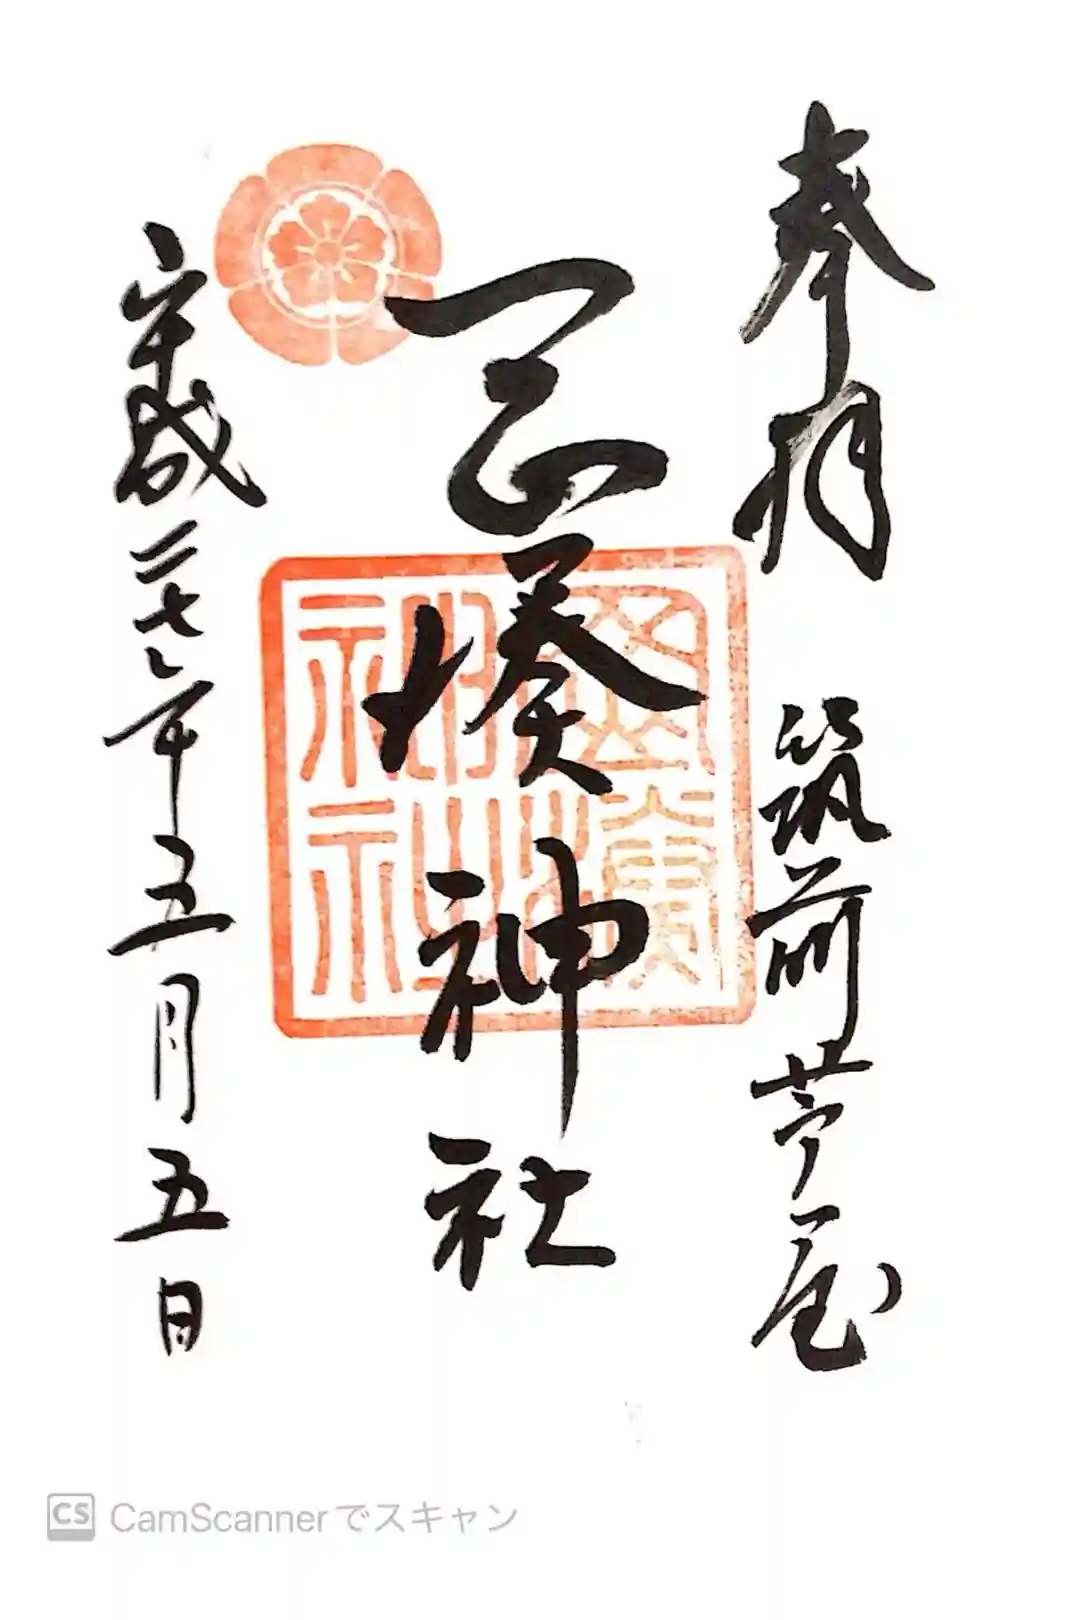 奉拝 筑前芦屋
岡湊神社
平成二七年五月五日
岡湊
神社
CamScannerでスキャン